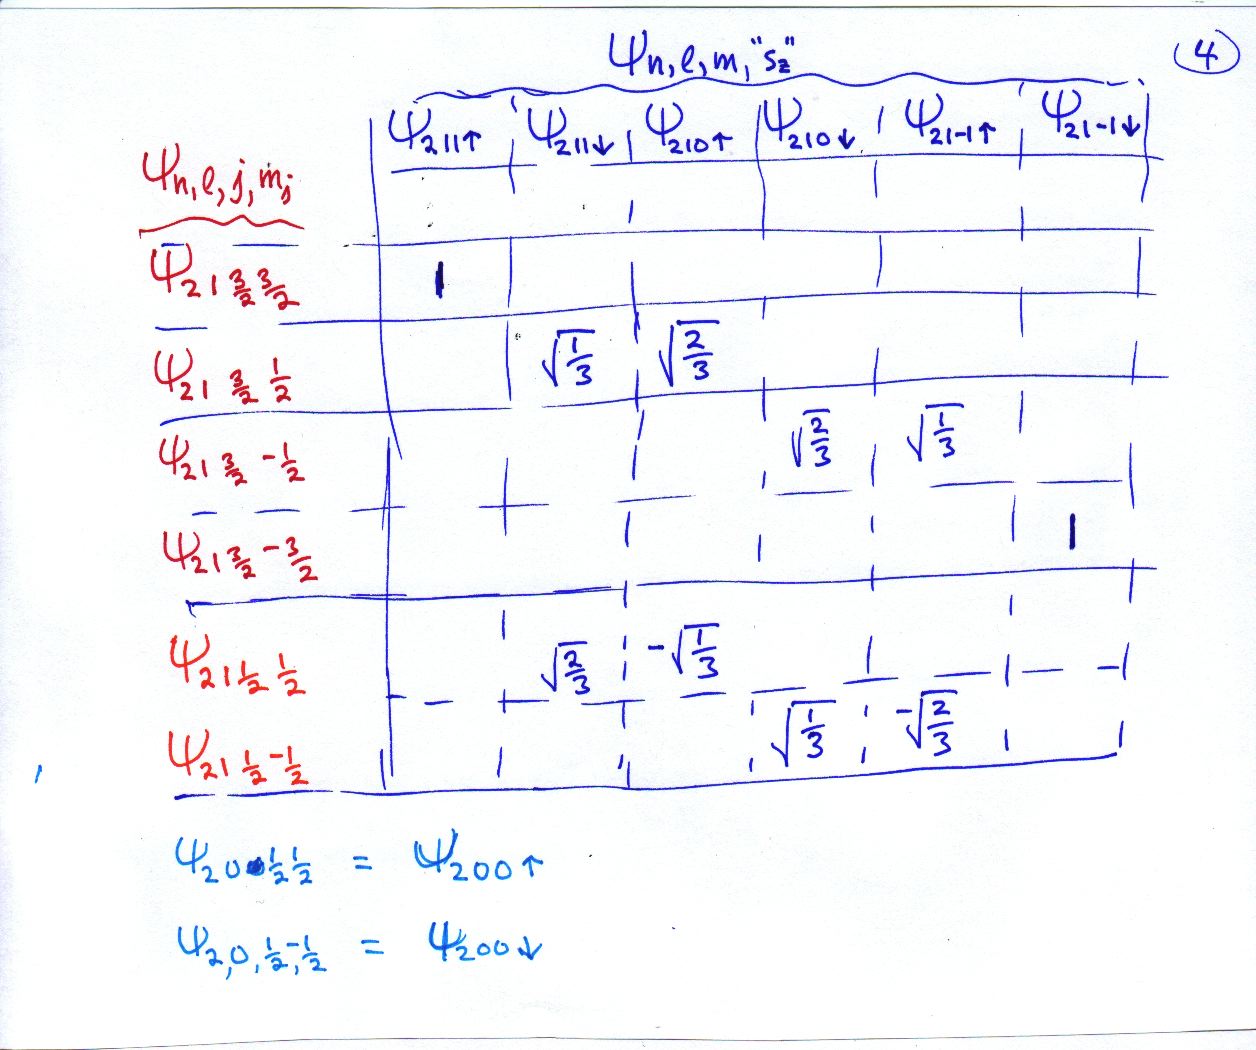 ψn,l,m,"sz"
4
ψ211↑ ψ211↓ ψ210↑ ψ210↓ ψ21-1↑ ψ21-1↓
ψn,l,j,mj
ψ21 3/2 3/2 1
ψ21 3/2 1/2 √1/3 √2/3
ψ21 3/2 -1/2 √2/3 √1/3
ψ21 3/2 -3/2 1
ψ21 1/2 1/2 √2/3 -√1/3
ψ21 1/2 -1/2 √1/3 -√2/3
ψ20 1/2 1/2 = ψ200↑
ψ2,0,1/2,-1/2 = ψ200↓